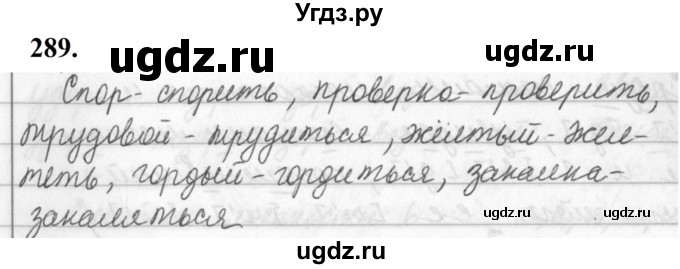 Угдз.ру
289.
ugdz.ru ugdz.ru
Спор - спорить, проверка - проверить,
трудовой - трудиться, жёлтый - жел-
ugdz.ru ugdz.ru
теть, гордый - гордиться, закалка -
ugdz.ru
закаляться
ugdz.ru
ugdz.ru